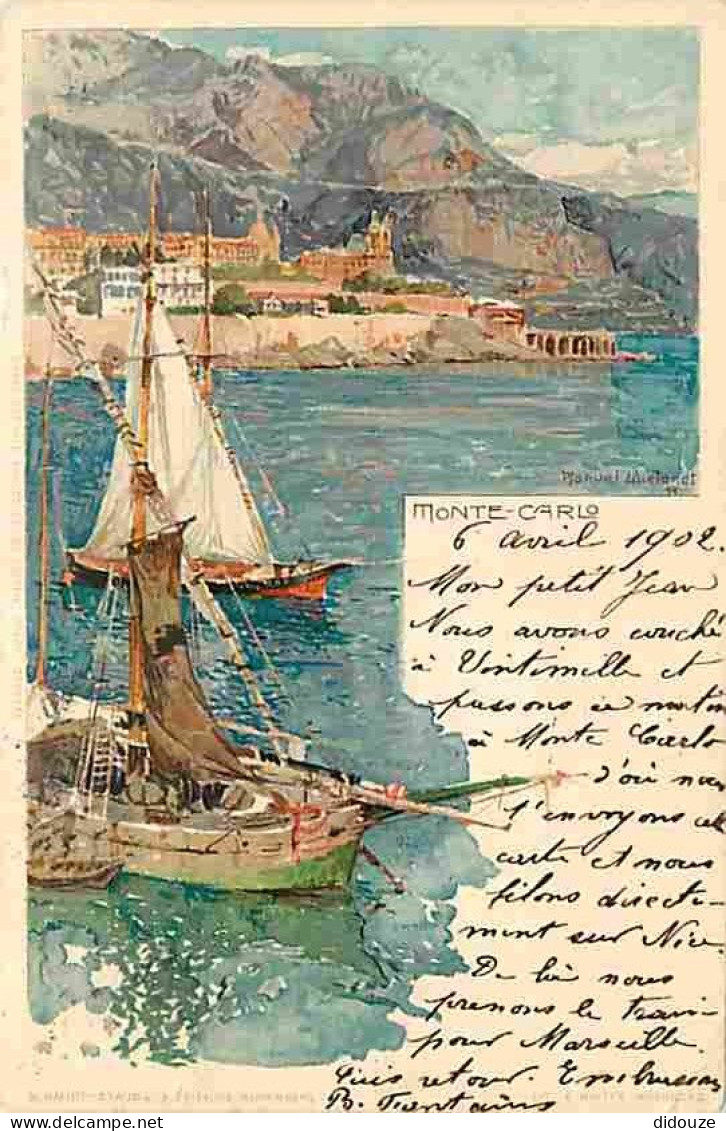 Manuel Wielandt
MONTE-CARLO
6 avril 1902.
Mon petit Jean
Nous avons couché
à Vintimille et
passons ce matin
à Monte Carlo
d'où nous
t'envoyons
carte et nous
filons directe-
ment sur Nice.
De là nous
prenons le train
pour Marseille.
Puis retour.
B.
delcampe.net
didouze